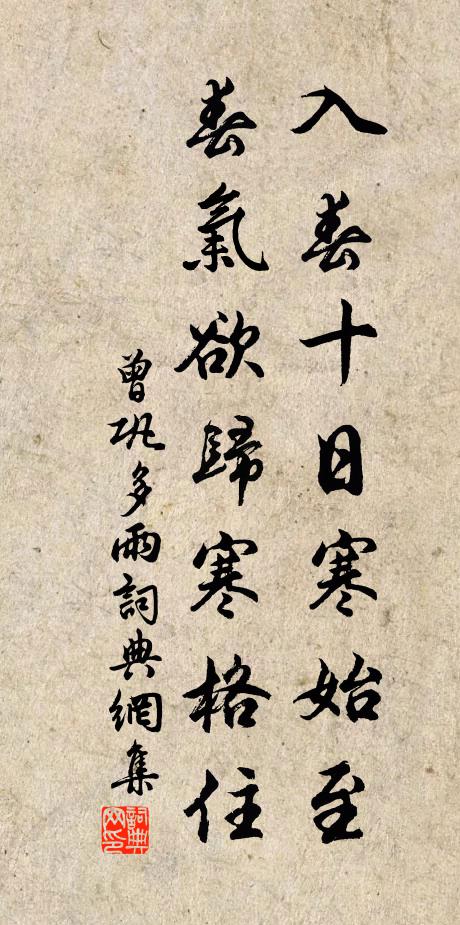 入春十日寒始至
春氣欲歸寒格住
曾巩多雨詞典網集
詞典网印